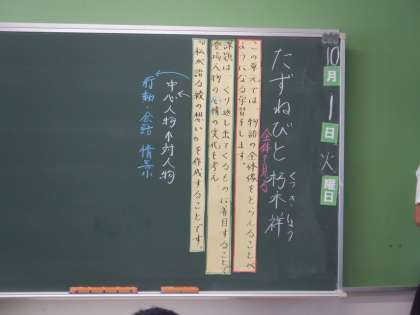 10月1日火曜日
たずねびと 朽木祥
くつき しょう
この単元では、物語の全体像をとらえることへ
全体を見る
ようになる学習をします。
課題は、くり返し出てくるものに着目することで
登場人物の心情の変化を考え
「私が語る綾の想い」を作成することです。
中心人物⇔対人物
行動・会話 情景